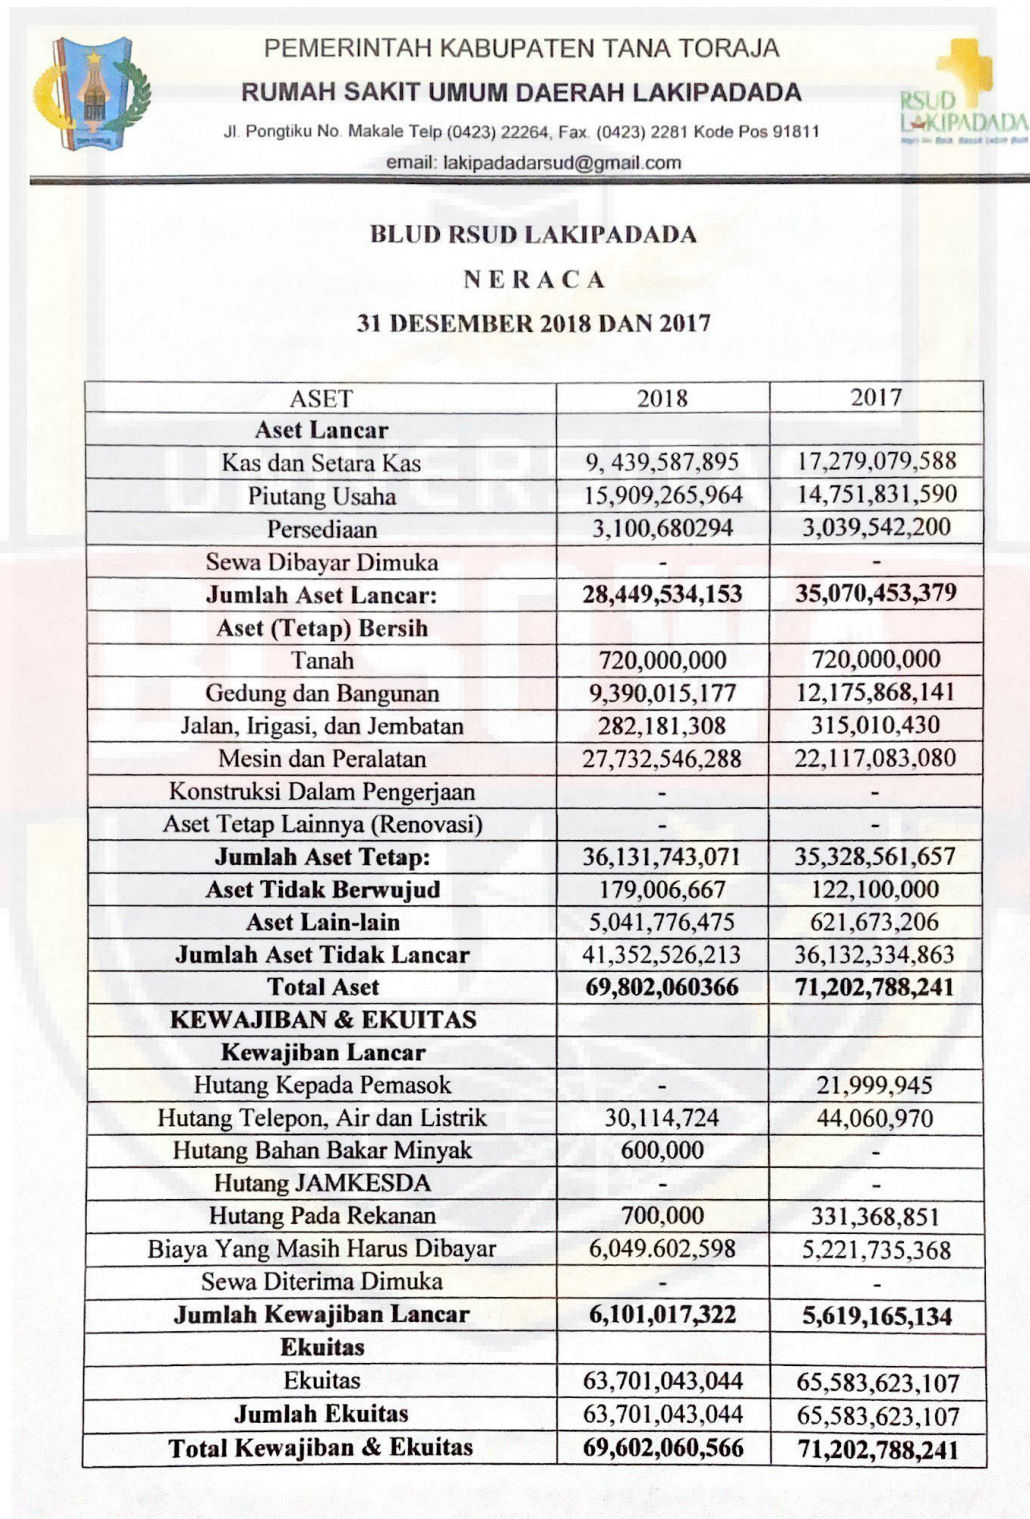 PEMERINTAH KABUPATEN TANA TORAJA
RUMAH SAKIT UMUM DAERAH LAKIPADADA
Jl. Pongtiku No. Makale Telp (0423) 22264, Fax. (0423) 2281 Kode Pos 91811
email: lakipadadarsud@gmail.com
RSUD
LAKIPADADA
BLUD RSUD LAKIPADADA
N E R A C A
31 DESEMBER 2018 DAN 2017
ASET 2018 2017
Aset Lancar
Kas dan Setara Kas 9, 439,587,895 17,279,079,588
Piutang Usaha 15,909,265,964 14,751,831,590
Persediaan 3,100,680294 3,039,542,200
Sewa Dibayar Dimuka - -
Jumlah Aset Lancar: 28,449,534,153 35,070,453,379
Aset (Tetap) Bersih
Tanah 720,000,000 720,000,000
Gedung dan Bangunan 9,390,015,177 12,175,868,141
Jalan, Irigasi, dan Jembatan 282,181,308 315,010,430
Mesin dan Peralatan 27,732,546,288 22,117,083,080
Konstruksi Dalam Pengerjaan - -
Aset Tetap Lainnya (Renovasi) - -
Jumlah Aset Tetap: 36,131,743,071 35,328,561,657
Aset Tidak Berwujud 179,006,667 122,100,000
Aset Lain-lain 5,041,776,475 621,673,206
Jumlah Aset Tidak Lancar 41,352,526,213 36,132,334,863
Total Aset 69,802,060366 71,202,788,241
KEWAJIBAN & EKUITAS
Kewajiban Lancar
Hutang Kepada Pemasok - 21,999,945
Hutang Telepon, Air dan Listrik 30,114,724 44,060,970
Hutang Bahan Bakar Minyak 600,000 -
Hutang JAMKESDA - -
Hutang Pada Rekanan 700,000 331,368,851
Biaya Yang Masih Harus Dibayar 6,049.602,598 5,221,735,368
Sewa Diterima Dimuka - -
Jumlah Kewajiban Lancar 6,101,017,322 5,619,165,134
Ekuitas
Ekuitas 63,701,043,044 65,583,623,107
Jumlah Ekuitas 63,701,043,044 65,583,623,107
Total Kewajiban & Ekuitas 69,602,060,566 71,202,788,241